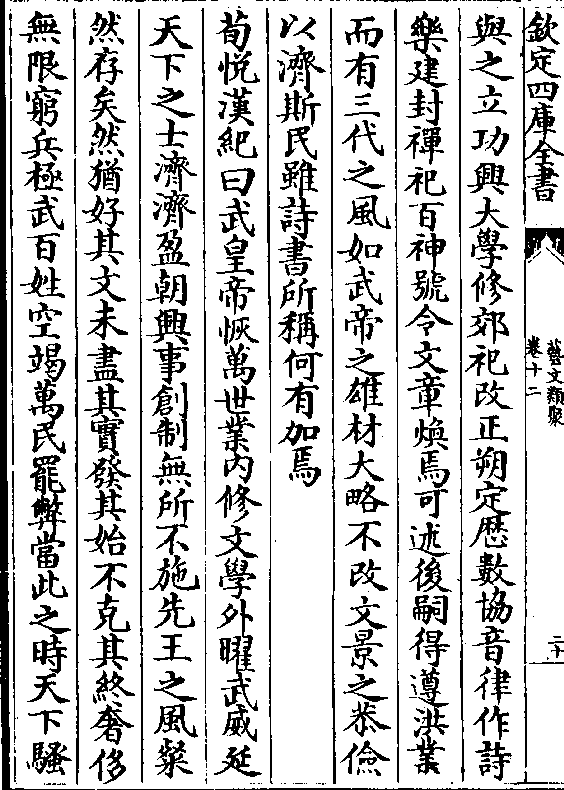 欽定四庫全書
藝文類聚
卷十二
二十
與之立功興大學修郊祀改正朔定歴數協音律作詩
樂建封禪祀百神號令文章煥焉可述後嗣得遵洪業
而有三代之風如武帝之雄材大略不改文景之恭儉
以濟斯民雖詩書所稱何有加焉
荀悅漢紀曰武皇帝恢萬世業内修文學外曜武威延
天下之士濟濟盈朝興事創制無所不施先王之風粲
然存矣然猶好其文未盡其實發其始不克其終奢侈
無限窮兵極武百姓空竭萬民罷弊當此之時天下騷